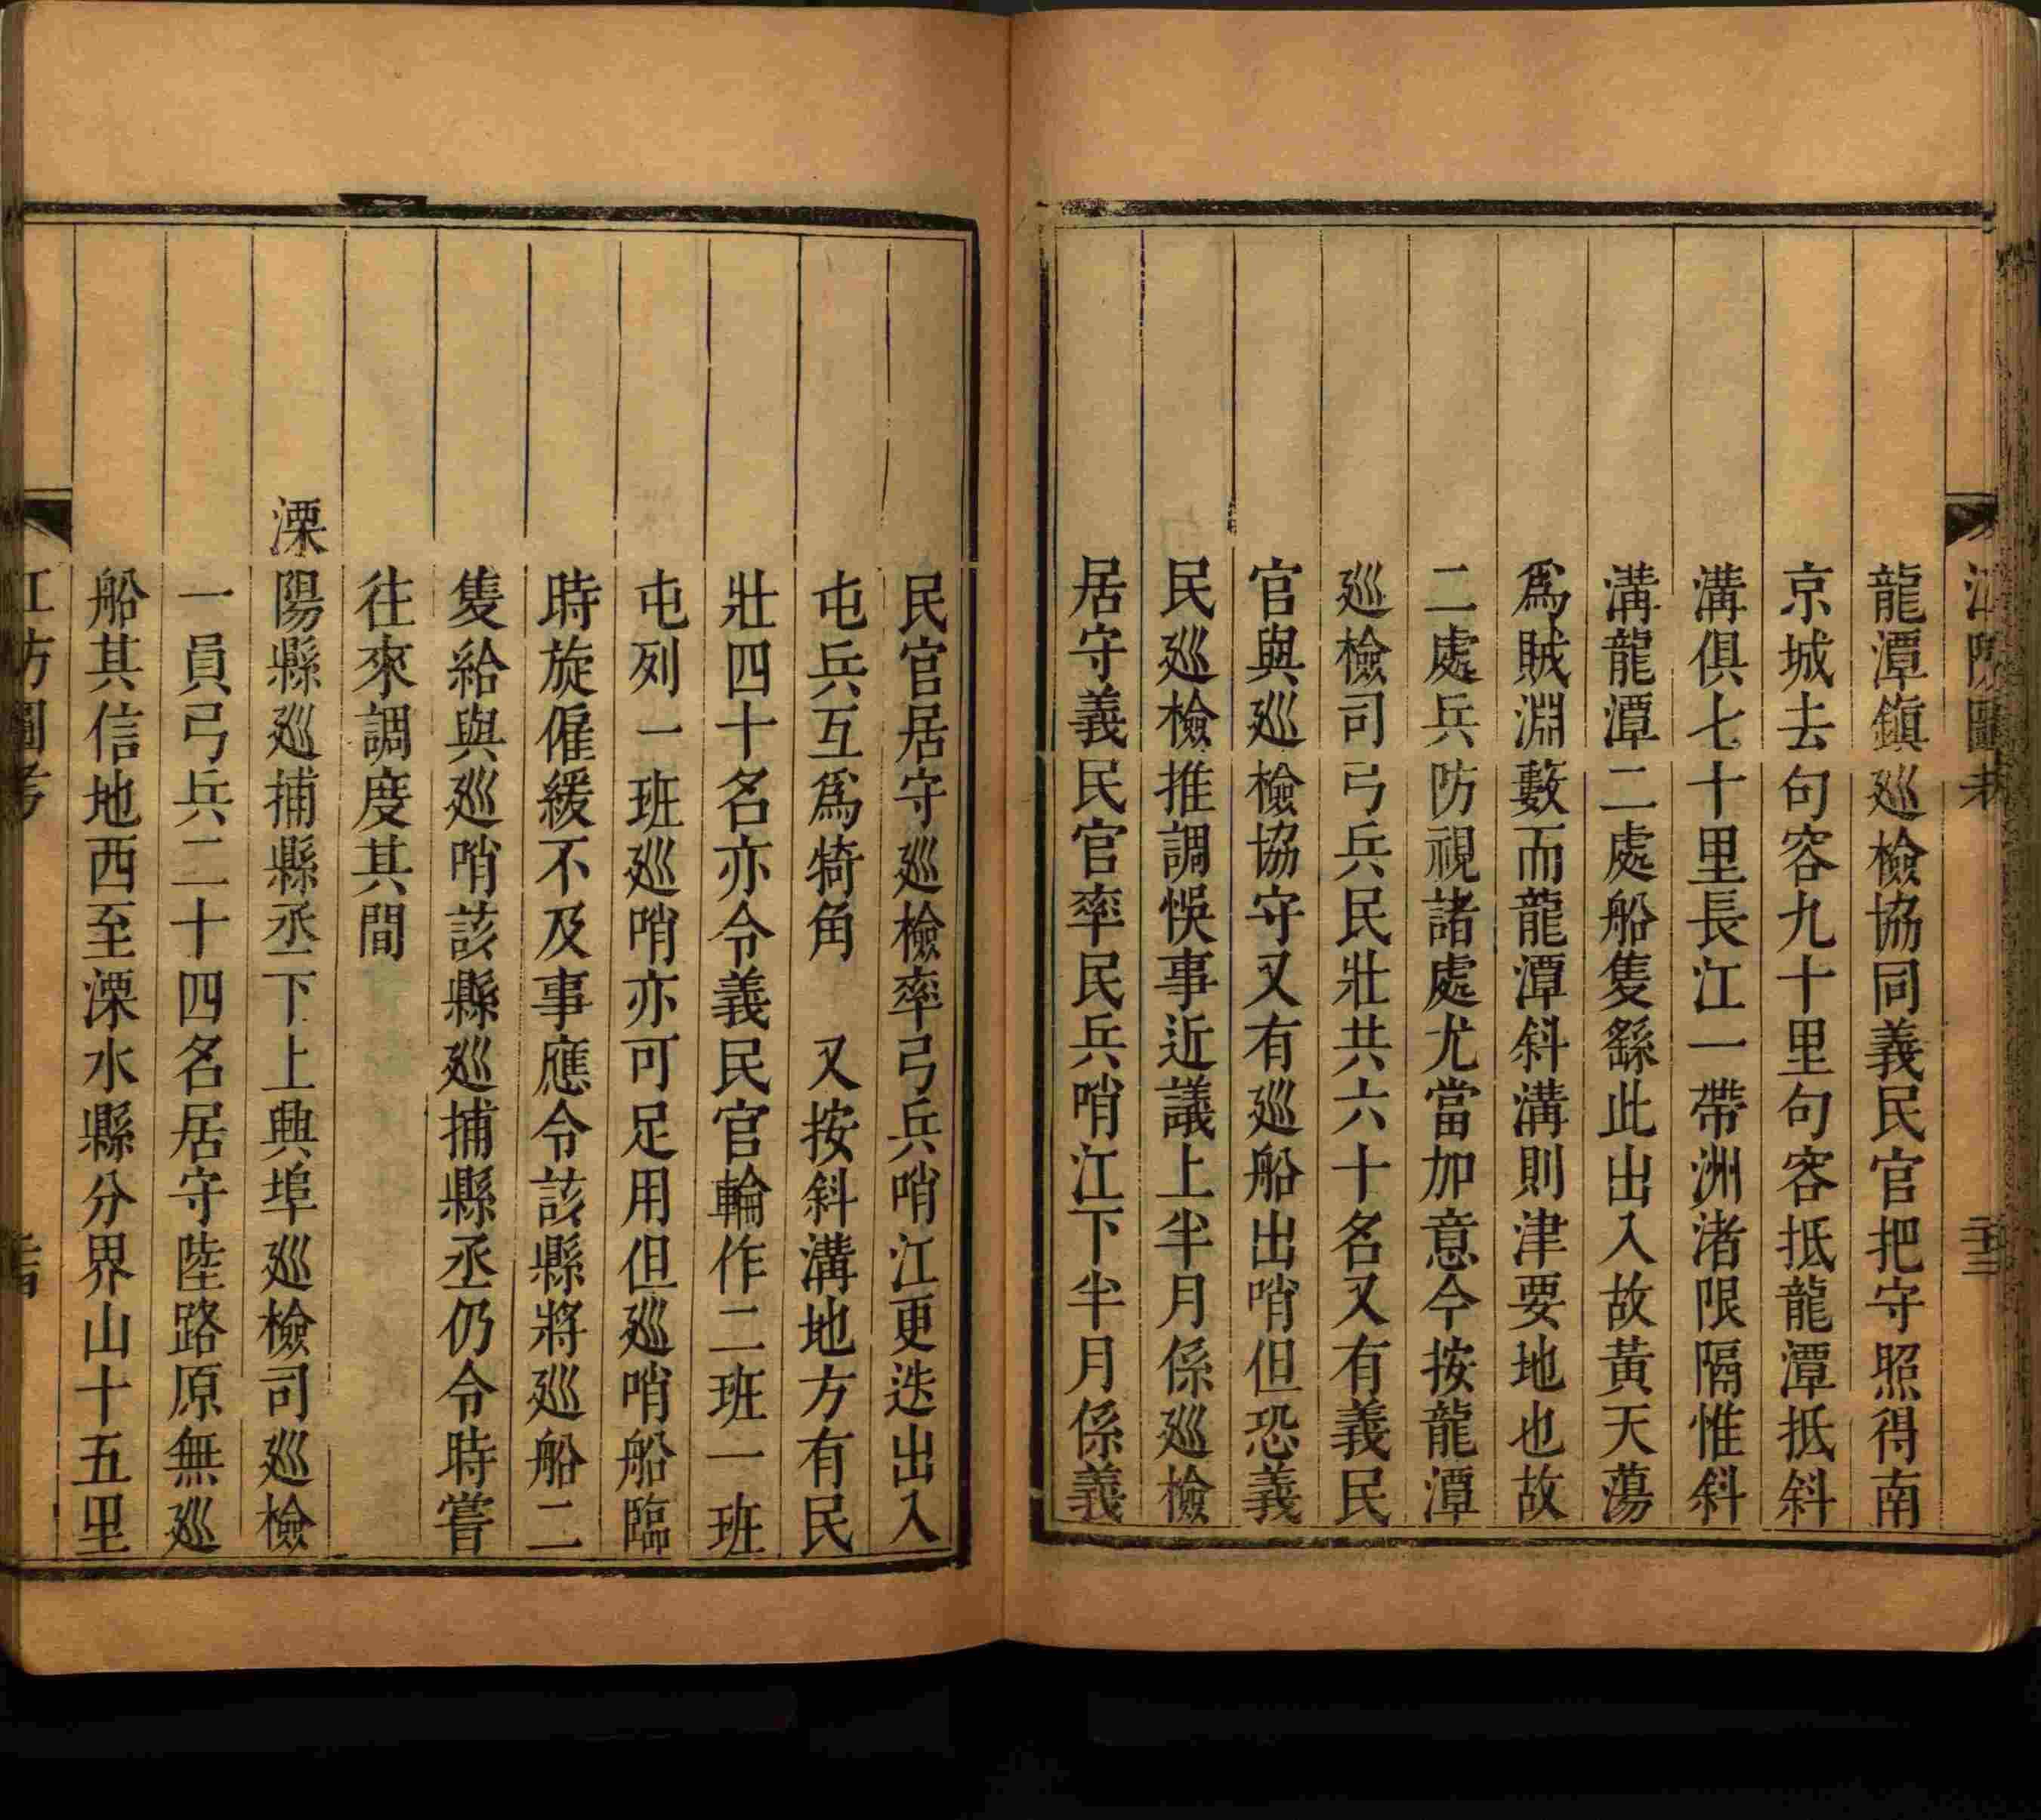 龍潭鎮巡檢協同義民官把守照得南
京城去句容九十里句容抵龍潭抵斜
溝俱七十里長江一帶洲渚限隔惟斜
溝龍潭二處船隻繇此出入故黃天蕩
爲賊淵藪而龍潭斜溝則津要地也故
二處兵防視諸處尤當加意今按龍潭
巡檢司弓兵民壯共六十名又有義民
官與巡檢協守又有巡船出哨但恐義
民巡檢推調悞事近議上半月係巡檢
居守義民官率民兵哨江下半月係義
民官居守巡檢率弓兵哨江更迭出入
屯兵互爲犄角　又按斜溝地方有民
壯四十名亦令義民官輪作二班一班
屯列一班巡哨亦可足用但巡哨船臨
時旋僱緩不及事應令該縣將巡船二
隻給與巡哨該縣巡捕縣丞仍令時嘗
往來調度其間
溧陽縣巡捕縣丞下上興埠巡檢司巡檢
一員弓兵二十四名居守陸路原無巡
船其信地西至溧水縣分界山十五里
江防圖考